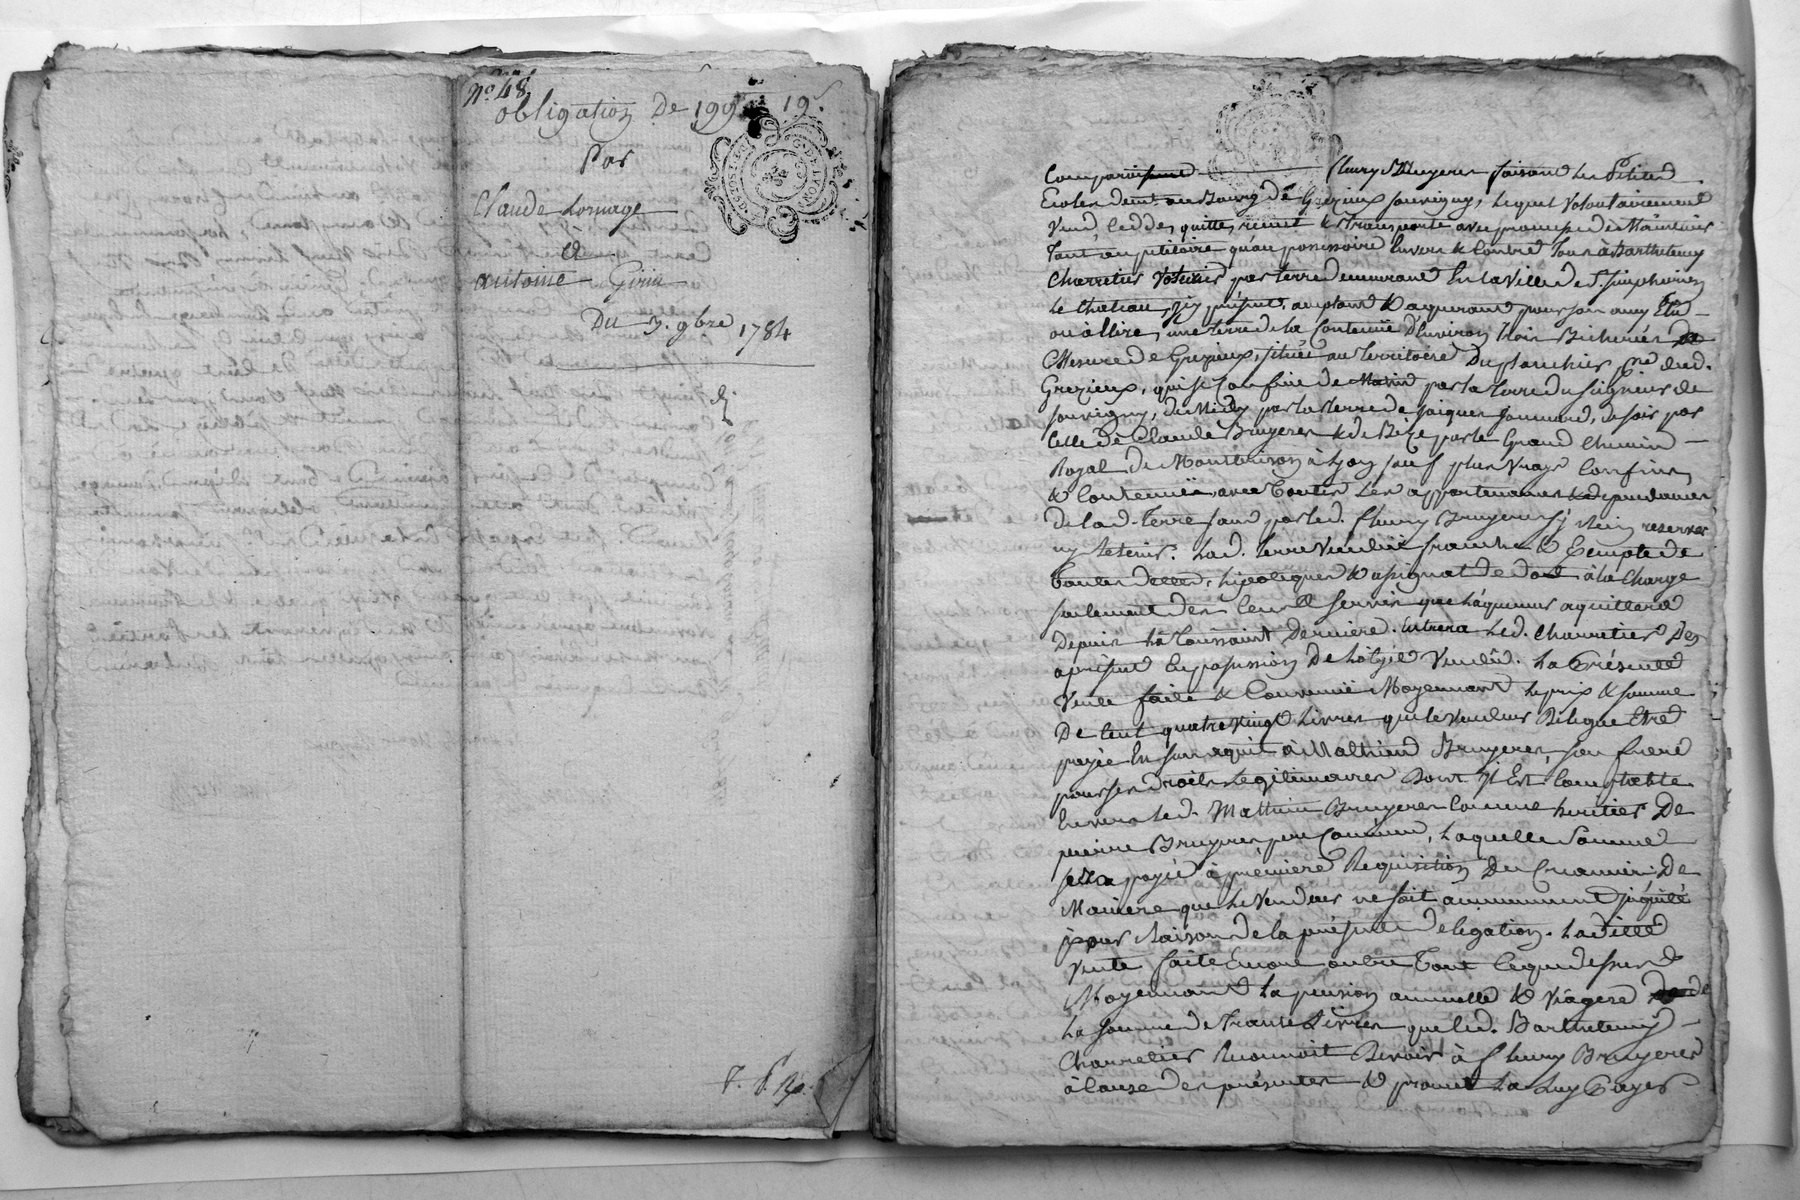 N.° 48
obligation De 199# 19s
Par
Claude Lornage
a
antoine Girin
Du 5. 9bre 1784
Comparaissent fleury Bruyeres faisant les Petites
Ecoles demt. au Bourg de Grezieux souvigny, Lequel Volontairement
Vend, Cedde, quitte, remet & transporte avec promesse de Maintenir
Tant au petitoire qu'au possessoire Envers & Contre Tous à Barthelemy
Charretier Voiturier par terre demeurant En la Ville de St. simphorien
Le Chateau, ycy présent, acceptant & aquerant pour son amy Elu
ou à Elire, une terre de la Contenue D'Environ trois Bicherées
Mesure de Grezieux, située au Territoire Du planchier psse. dud.
Grezieux, qui se Confine de Matin par la Terre du seigneur de
souvigny, de Midy par la terre de Jacques Jommand, de soir par
Celle de Claude Bruyeres & de Bize par le Grand Chemin
Royal de Montbrison à Lyon sauf plus Vrays Confins
& Contenüe, avec Toutes Les appartenances & dépendances
de lad. Terre sans par led. fleury Bruyeres s'y Rien reserver
ny retenir. Lad. terre Vendüe franche & Exempte de
Toutes dettes, hipoteques & assignat de dot à la Charge
seulement des Cens & servis que L'aquereur aquittera
Depuis La Toussaint Derniere. Entrera Led. Charretier Des
apresent En possession De L'objet Vendu. La Présente
Vente faite & Convenüe Moyennant Le prix & somme
De Cent quatrevingt Livres que le Vendeur Delegue Etre
payée En son aquit à Mathieu Bruyeres, son frere
pour ses droits Legitimaires Dont Il Est Comptable
Envers Led. Mathieu Bruyeres Comme heritier De
pierre Bruyeres pere Commun, Laquelle somme
sera payée à premiere Requisition Du Creancier De
Maniere que Le Vendeur ne soit aucunement Inquiété
pour Raison de la présente Délégation. Ladite
Vente faite Encore outre Tout Ce que dessus
Moyennant La pension annuelle & Viagere de
La somme de Trante Livres que led. Barthelemy
Charretier Reconnoit Devoir à fleury Bruyeres
à Cause des présentes & promet La Luy Payer